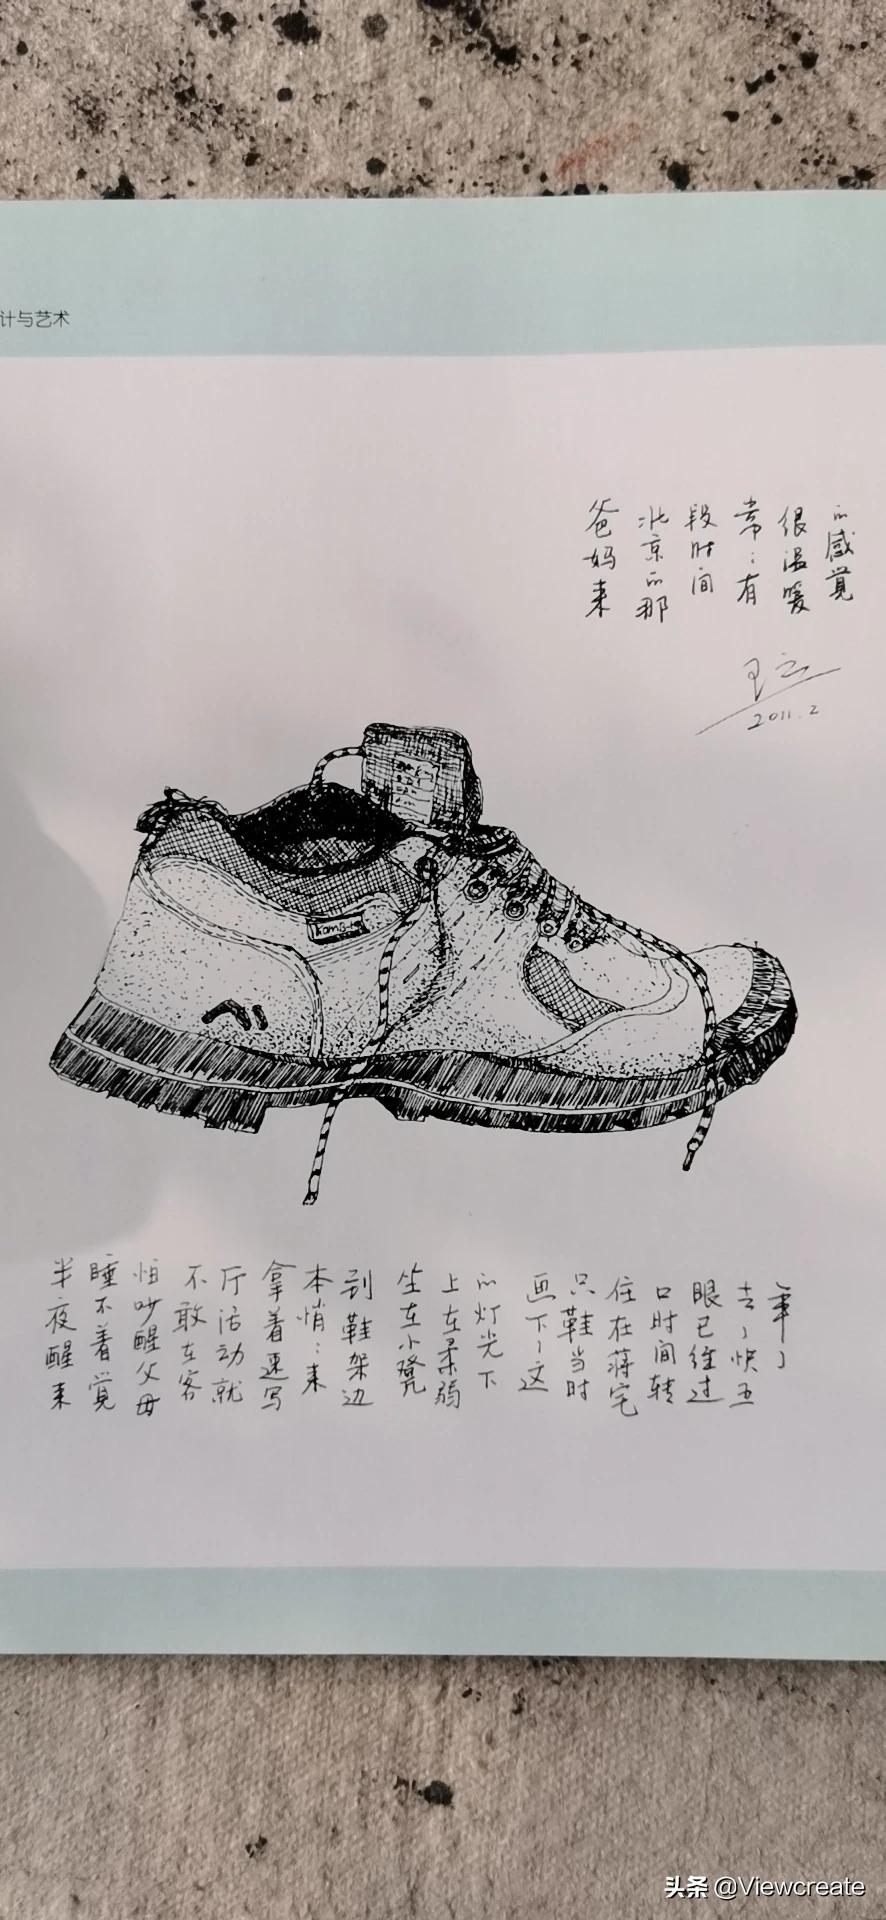 计与艺术
爸妈来
北京的那
段时间
常:有
很温暖
的感觉
2011.2
半夜醒来
睡不着觉
怕吵醒父母
不敢在客
厅活动就
拿着速写
本悄:来
到鞋架边
坐在小凳
上在柔弱
的灯光下
画下了这
只鞋当时
住在蒋宅
口时间转
眼已经过
去了快五
年了
头条 @Viewcreate